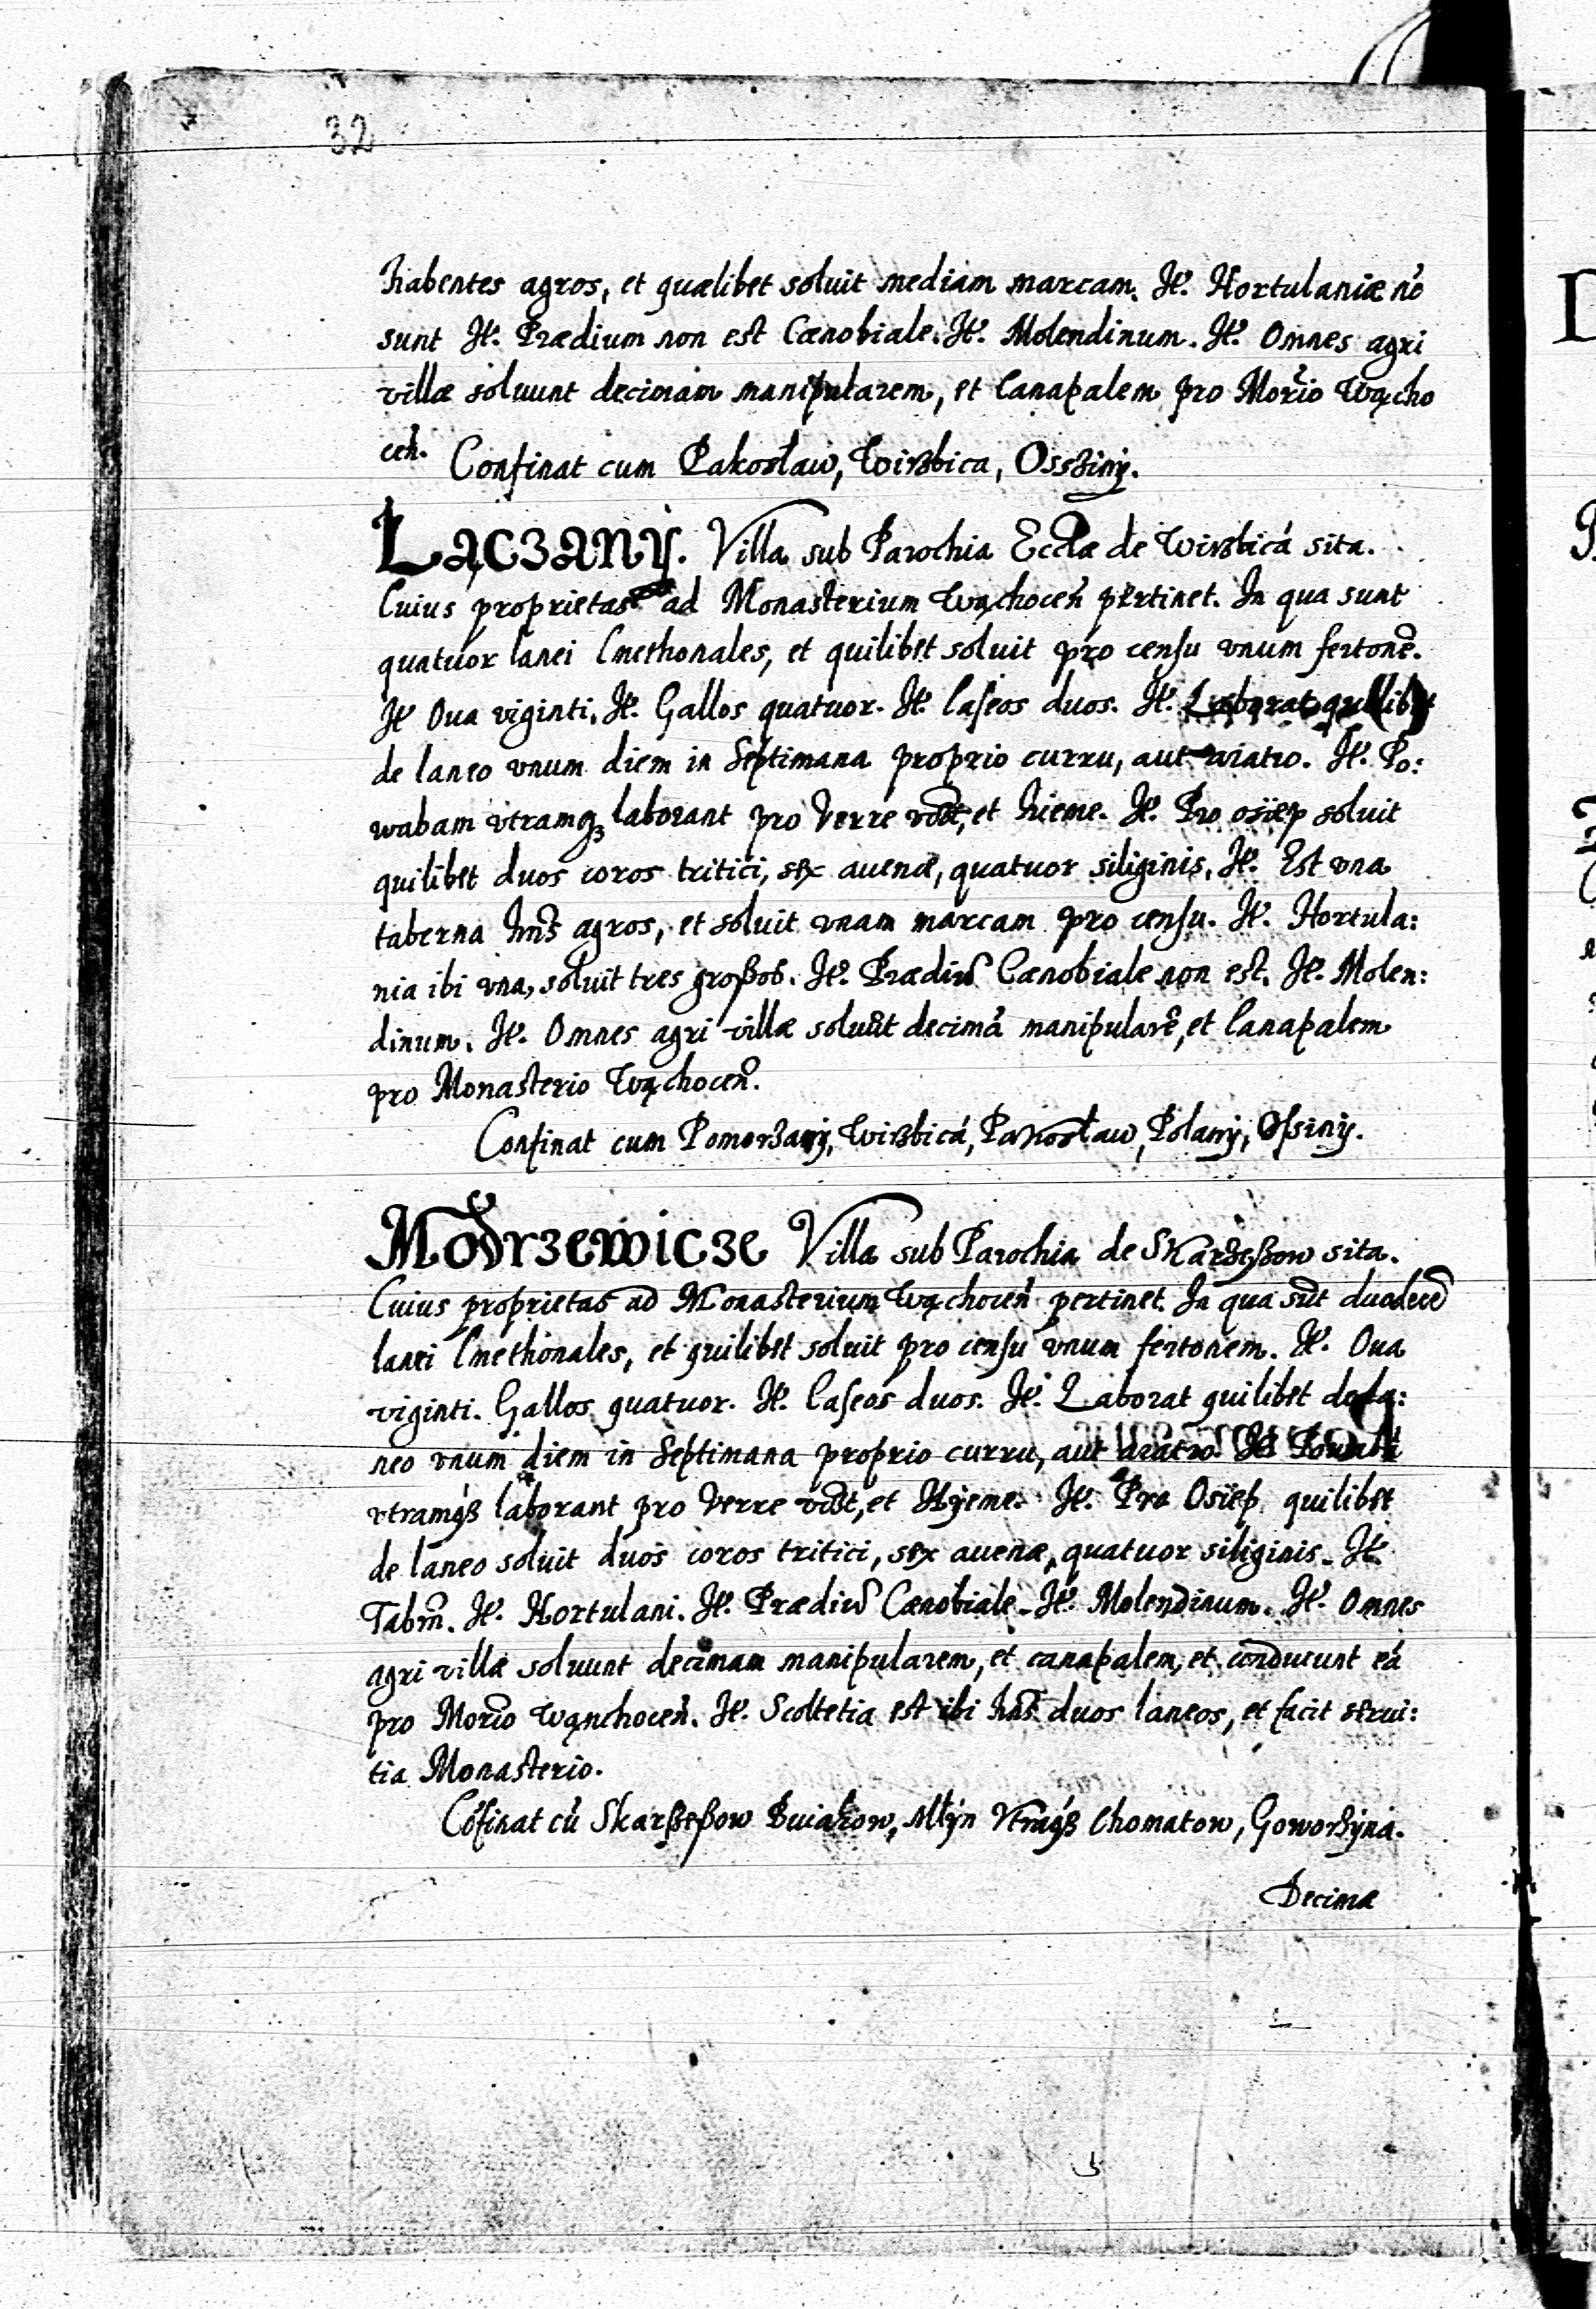 32
habentes agros, et quælibet soluit mediam marcam. It. Hortulaniæ nõ
sunt It. Prædium non est Cænobiale. It. Molendinum. It. Omnes agri
villæ soluunt decimam manipularem, et Canapalem pro Mor̃io Wącho
ceñ. Confinat cum Pakosław, Wirzbica, Osszinÿ.
Lączanÿ. Villa sub Parochia Eccłæ de Wirzbicá sita.
Cuius proprietas ad Monasterium Wąchoceñ pertinet. In qua sunt
quatuor lanei Cmethonales, et quilibet soluit pro censu vnum fertonẽ.
It Oua viginti. It. Gallos quatuor. It. Caseos duos. It. Laborat quilibet
de laneo vnum diem in Septimana proprio curru, aut aratro. It. Po:
wabam vtramqȝ laborant pro Verre et hieme. It. Pro osiep soluit
quilibet duos coros tritici, sex auenæ, quatuor siliginis. It. Est vna
taberna hñs agros, et soluit vnam marcam pro censu. It. Hortula:
nia ibi vna, soluit tres großos. It. Prædiũ Cænobiale non est. It. Molen:
dinum. It. Omnes agri villæ soluũt decimã manipularẽ, et Canapalem
pro Monasterio Wąchoceñ.
Confinat cum Pomorzanÿ, Wirzbicá, Pakosław, Polanÿ, Ossinÿ.
Modrzewicze Villa sub Parochia de Skarzeßow sita.
Cuius proprietas ad Monasterium Wąchoceñ pertinet. In qua sũt duodecẽ
lanei Cmethonales, et quilibet soluit pro censu vnum fertonem. It. Oua
viginti. Gallos quatuor. It. Caseos duos. It. Laborat quilibet de la:
neo vnum diem in Septimana proprio curru, aut aratro. It
vtramqȝ laborant pro Verre et Hÿeme. It. Pro Osiep quilibet
de laneo soluit duos coros tritici, sex auenæ, quatuor siliginis. It
Tabrñ. It. Hortulani. It. Prædiũ Cænobiale. It. Molendinum. It. Omnes
agri villæ soluunt decimam manipularem, et canapalem, et conducunt eã
pro Mor̃io Wąnchoceñ. It. Scoltetia est ibi hñs duos laneos, et facit serui:
tia Monasterio.
Cõfinat cũ Skarßeßow Młÿn Vtrmqȝ Chomatow, Goworzÿna.
Decimæ